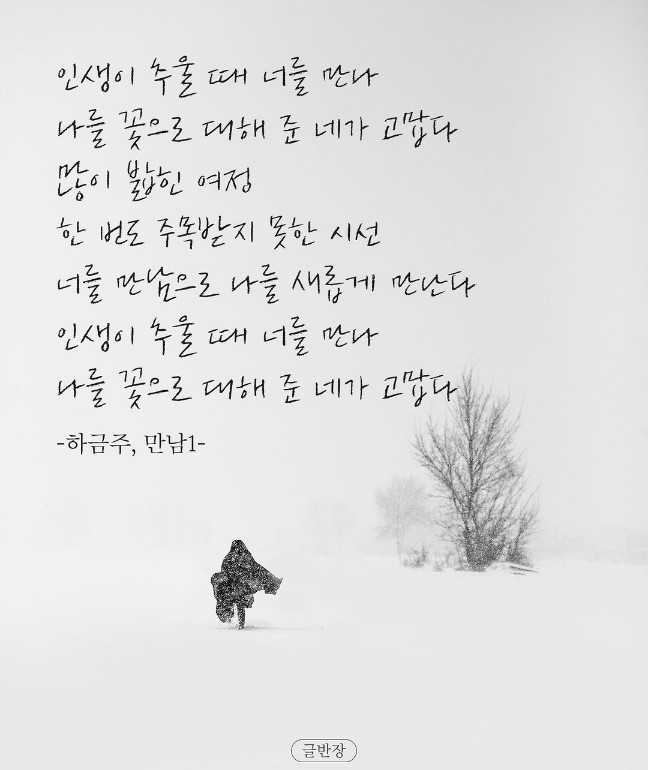 인생이 추울 때 너를 만나
나를 꽃으로 대해 준 네가 고맙다
많이 밟힌 여정
한 번도 주목받지 못한 시선
너를 만남으로 나를 새롭게 만난다
인생이 추울 때 너를 만나
나를 꽃으로 대해 준 네가 고맙다
-하금주, 만남1-
글반장